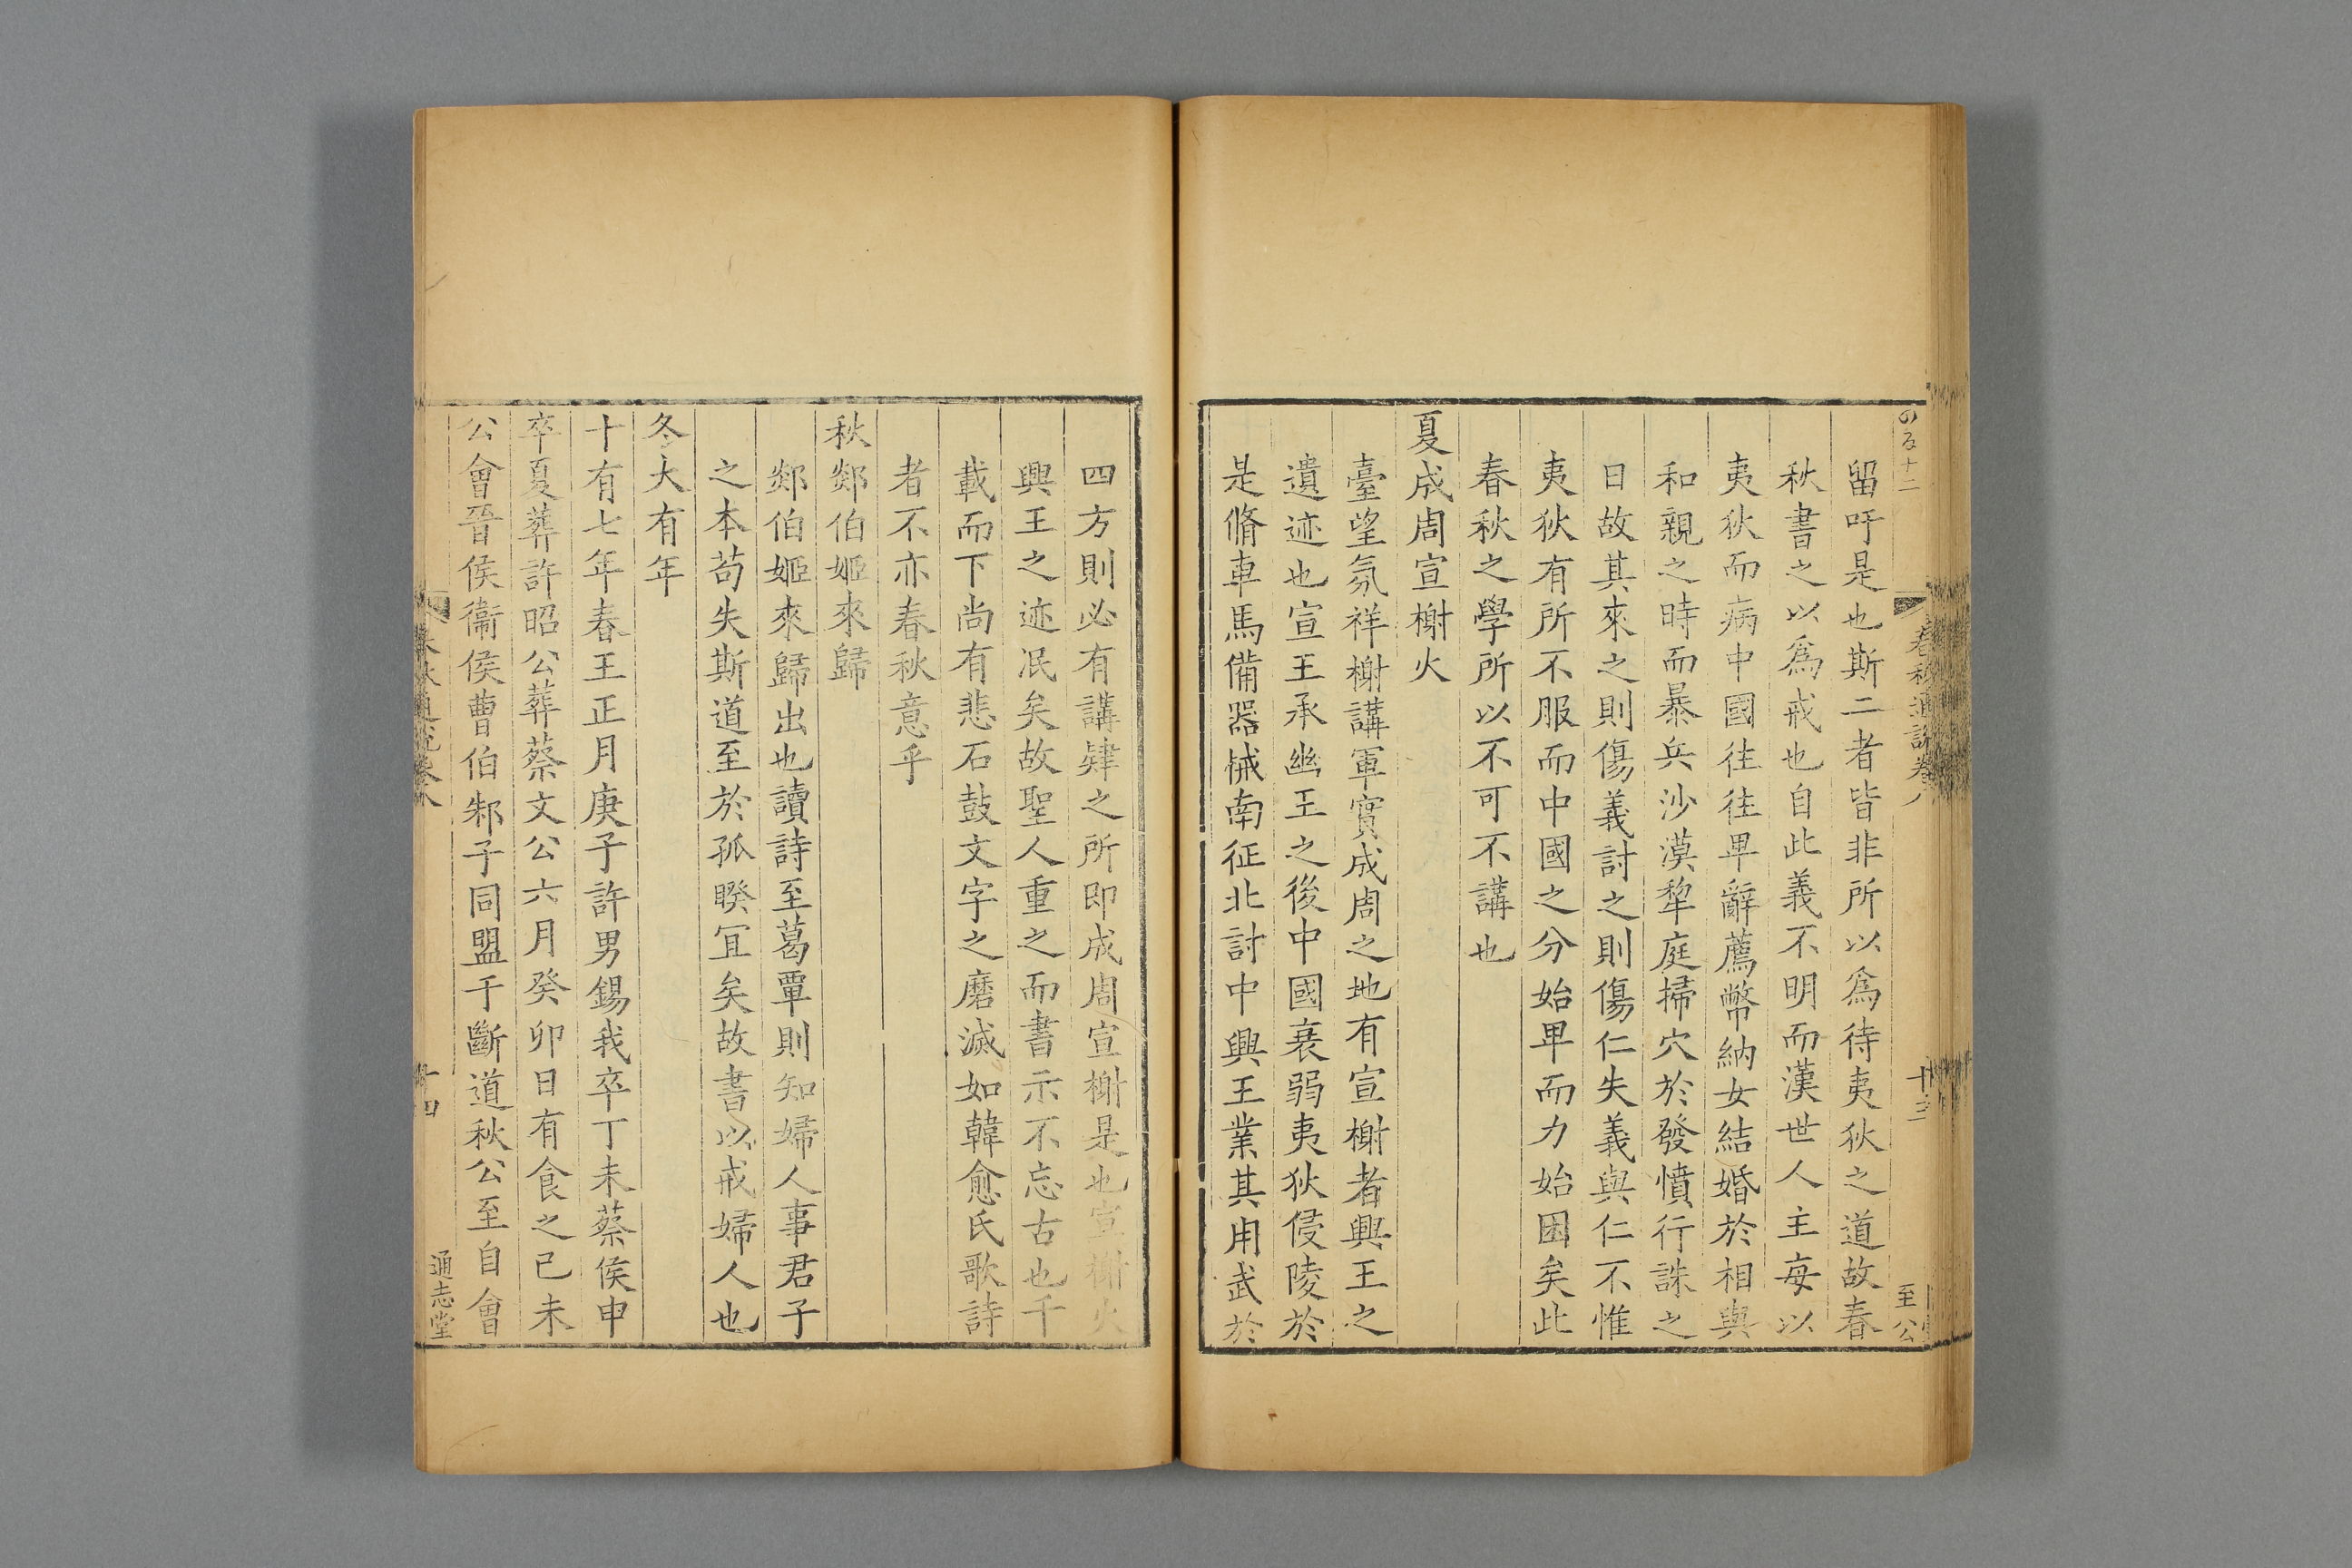 春秋通說卷八
十三
至公
留吁是也斯二者皆非所以爲待夷狄之道故春
秋書之以爲戒也自此義不明而漢世人主每以
夷狄而病中國往往卑辭薦幣納女結婚於相與
和親之時而暴兵沙漠犂庭掃穴於發憤行誅之
日故其來之則傷義討之則傷仁失義與仁不惟
夷狄有所不服而中國之分始卑而力始困矣此
春秋之學所以不可不講也
夏成周宣榭火
臺望氛祥榭講軍實成周之地有宣榭者興王之
遺迹也宣王承幽王之後中國衰弱夷狄侵陵於
是脩車馬備器械南征北討中興王業其用武於
四方則必有講肄之所即成周宣榭是也宣榭火
興王之迹泯矣故聖人重之而書示不忘古也千
載而下尚有悲石鼓文字之磨滅如韓愈氏歌詩
者不亦春秋意乎
秋郯伯姬來歸
郯伯姬來歸出也讀詩至葛覃則知婦人事君子
之本苟失斯道至於孤睽冝矣故書以戒婦人也
冬大有年
十有七年春王正月庚子許男錫我卒丁未蔡侯申
卒夏葬許昭公葬蔡文公六月癸卯日有食之己未
公會晉侯衞侯曹伯邾子同盟于斷道秋公至自會
春秋通說卷八
十四
通志堂